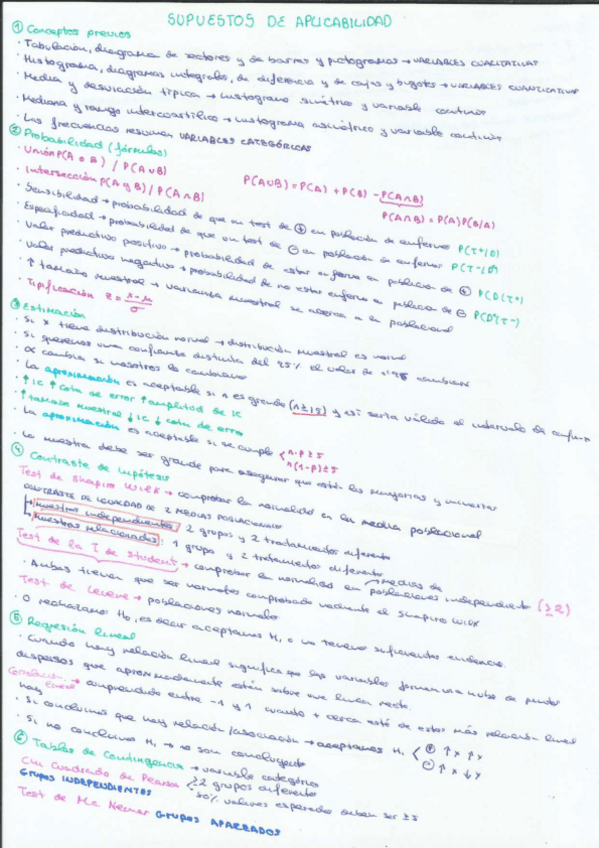 SUPUESTOS DE APLICABILIDAD
① Conceptos previos
· Tabulación, diagrama de sectores y de barras y pictogramas → VARIABLES CUALITATIVAS
· Histograma, diagramas integrales, de diferencia y de cajas y bigotes → VARIABLES CUANTITATIVAS
· Media y desviación típica → histograma simétrico y variable continua
· Mediana y rango intercuartílico → histograma asimétrico y variable continua
· Las frecuencias resumen VARIABLES CATEGÓRICAS
② Probabilidad (fórmulas)
· Unión P(A o B) / P(A∪B)
· Intersección P(A y B) / P(A∩B)
P(A∪B) = P(A) + P(B) - P(A∩B)
P(A∩B) = P(A)P(B/A)
· Sensibilidad → probabilidad de que un test de ⊕ en población de enfermos P(T+/D)
· Especificidad → probabilidad de que un test de ⊖ en población de enfermos
· Valor predictivo positivo → probabilidad de estar enfermo en población de ⊕ P(D/T+)
· Valor predictivo negativo → probabilidad de no estar enfermo en población de ⊖
· ↑ tamaño muestral → varianza muestral se acerca a la poblacional
· Tipificación z = x-μ / σ
③ Estimación
· Si x tiene distribución normal → distribución muestral es normal
· Si queremos una confianza distinta del 95% el valor de 1'96 cambiará
· α cambia si nosotros lo cambiamos
· La aproximación es aceptable si n es grande y así sería válido el intervalo de confianza
· ↑ IC ↑ cota de error ↑ amplitud de IC
· ↑ tamaño muestral ↓ IC ↓ cota de error
· La aproximación es aceptable si se cumple n·p ≥ 5
n(1-p) ≥ 5
· La muestra debe ser grande para asegurar que estén las mayorías y minorías
④ Contraste de hipótesis
Test de Shapiro Wilk → comprobar la normalidad en la media poblacional
CONTRASTE DE IGUALDAD DE 2 MEDIAS POBLACIONALES
→ muestras independientes: 2 grupos y 2 tratamientos diferentes
→ muestras relacionadas: 1 grupo y 2 tratamientos diferentes
Test de la T de Student → comprobar en normalidad en medias de poblaciones independientes (≥2)
· Ambas tienen que ser normales comprobado mediante el Shapiro Wilk
Test de Levene → poblaciones normales
· O rechazamos H₀, es decir aceptamos H₁ o no tenemos suficientes evidencias.
⑤ Regresión lineal
· Cuando hay relación lineal significa que las variables forman una nube de puntos
dispersos que aproximadamente están sobre una línea recta.
Correlación lineal → comprendido entre -1 y 1 cuanto + cerca esté de estos más relación lineal
hay
· Si concluimos que hay relación/asociación → aceptamos H₁ ⊕ ↑x ↑y
⊖ ↑x ↓y
· Si no concluimos H₁ → no son concluyente
⑥ Tablas de Contingencia → variable categórica
Chi Cuadrado de Pearson ≥2 grupos diferentes
GRUPOS INDEPENDIENTES 80% valores esperados deben ser ≥5
Test de Mc Nemar GRUPOS APAREADOS